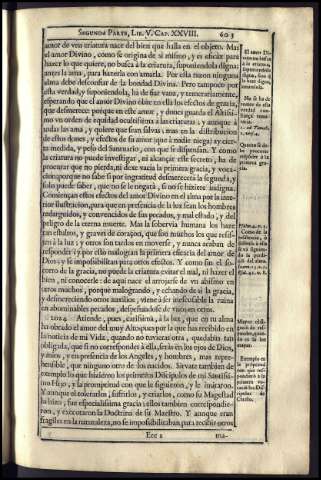 SEGUNDA PARTE, LIB. V. CAP. XXVIII. 603
amor de vna criatura nace del bien que halla en el objeto. Mas
el amor Divino, como se origina de si mismo, y es eficàz para
hazer lo que quiere, no busca à la criatura, suponiendola digna;
antes la ama, para hazerla con amarla. Por esta razon ninguna
alma debe desconfiar de la bondad Divina. Pero tampoco por
esta verdad, y suponiendola, ha de fiar vana, y temerariamente,
esperando que el amor Divino obre en ella los efectos de gracia,
que desmerece: porque en este amor, y dones guarda el Altissi-
mo vn orden de equidad ocultissima à las criaturas: y aunque à
todas las ama, y quiere que sean salvas; mas en la distribucion
de estos dones, y efectos de su amor (que à nadie niega) ay cier-
ta medida, y peso del Santuario, con que se dispensan. Y como
la criatura no puede investigar, ni alcançar este secreto, ha de
procurar que no pierda, ni deje vacia la primera gracia, y voca-
cion; porque no sabe si por ingratitud desmerecerà la segunda, y
solo puede saber, que no se le negarà, si no se hiziere indigna.
Comiençan estos efectos del amor Divino en el alma por la inte-
rior ilustracion, para que en presencia de la luz sean los hombres
redarguidos, y convencidos de sus pecados, y mal estado, y del
peligro de la eterna muerte. Mas la soberuia humana los haze
tan estultos, y graves de coraçon, que son muchos los que resis-
ten à la luz; y otros son tardos en moverse, y nunca acaban de
responder; y por esso malogran la primera eficacia del amor de
Dios; y se impossibilitan para otros efectos. Y como sin el so-
corro de la gracia, no puede la criatura evitar el mal, ni hazer el
bien, ni conocerle: de aqui nace el arrojarse de vn abismo en
otros muchos, porque malogrando, y echando de si la gracia,
y desmereciendo otros auxilios, viene à ser inescusable la ruina
en abominables pecados, despeñandose de vnos en otros.
1204 Atiende, pues, carissima, à la luz, que en tu alma
ha obrado el amor del muy Alto; pues por la que has recibido en
la noticia de mi Vida, quando no tuvieras otra, quedabas tan
obligada, que si no correspondes à ella, seràs en los ojos de Dios,
y mios, y en presencia de los Angeles, y hombres, mas repre-
hensible, que ninguno otro de los nacidos. Sirvate tambien de
exemplo lo que hizieron los primeros Discipulos de mi Santissi-
mo Hijo, y la promptitud con que le siguieron, y le imitaron.
Y aunque el tolerarlos, sufrirlos, y criarlos, como su Magestad
lo hizo, fue especialissima gracia; ellos tambien correspondie-
ron, y executaron la Doctrina de su Maestro. Y aunque eran
fragiles en la naturaleza, no se impossibilitaban, para recibir otros
Eee 2
El amor Di-
vino no busca
à la criatura,
suponiendola
digna, sino q̃
la haze digna,
amandola.
No se ha de
tomar de esta
verdad con-
fiança teme-
raria.
Christo.